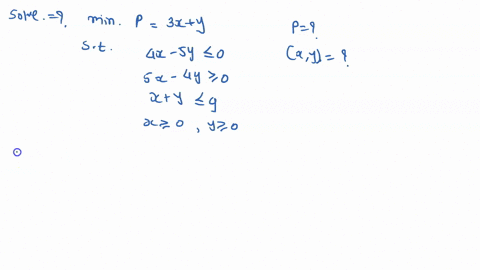 Solve =?. min. P = 3x+y P=?
s.t. 4x-5y ≤0 (x,y) = ?
5x-4y ≥0
x+y ≤ 9
x≥0 , y≥0